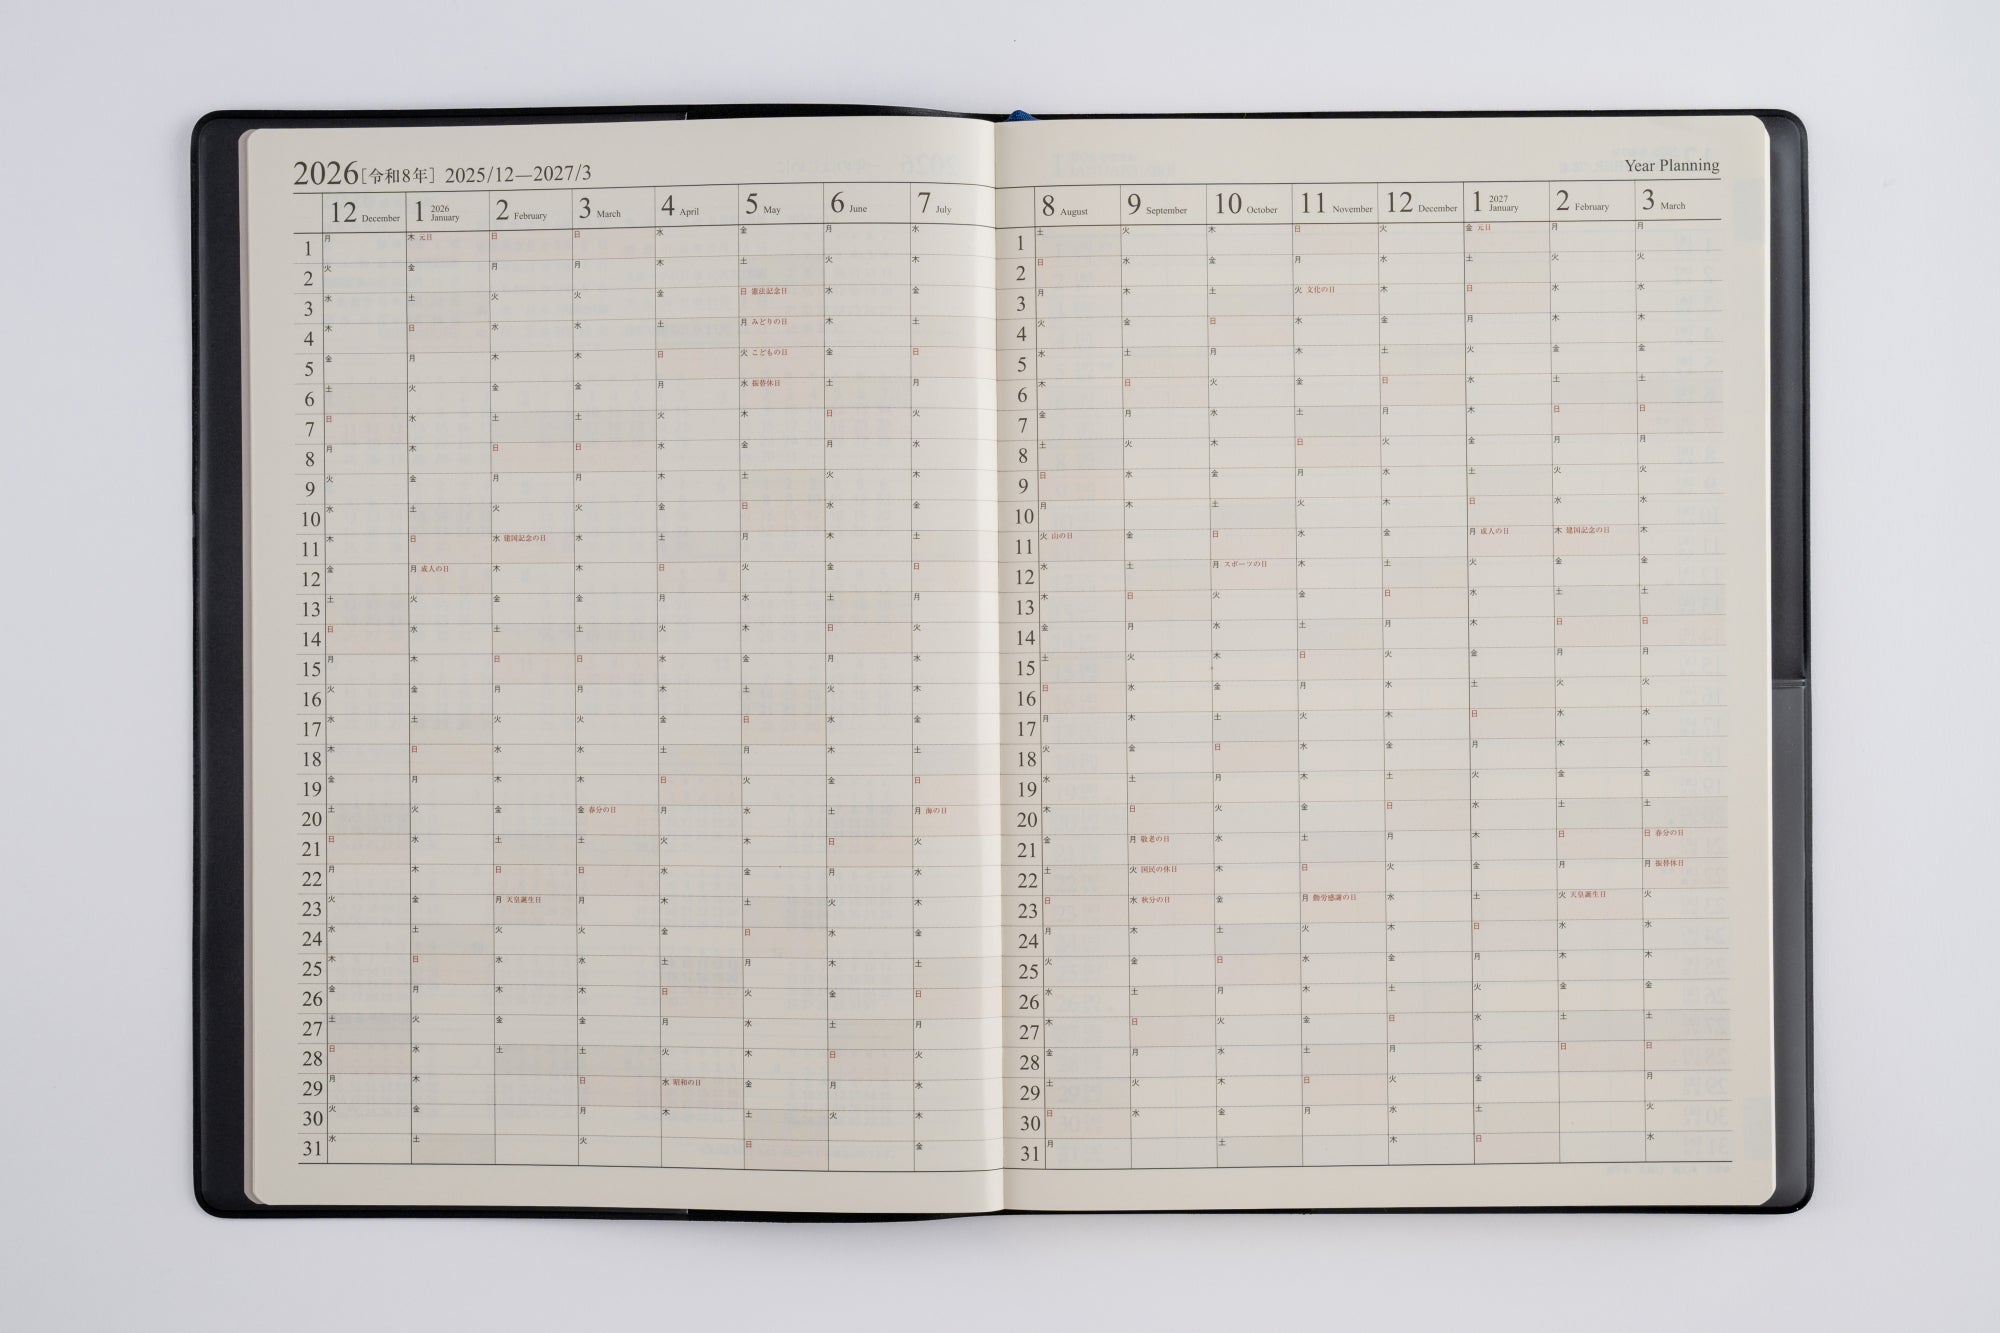 2026［令和8年］ 2025/12—2027/3
12 December 1 2026 January 2 February 3 March 4 April 5 May 6 June 7 July
1 月 木 元日 日 日 水 金 月 水
2 火 金 月 月 木 土 火 木
3 水 土 火 火 金 日 憲法記念日 水 金
4 木 日 水 水 土 月 みどりの日 木 土
5 金 月 木 木 日 火 こどもの日 金 日
6 土 火 金 金 月 水 振替休日 土 月
7 日 水 土 土 火 木 日 火
8 月 木 日 日 水 金 月 水
9 火 金 月 月 木 土 火 木
10 水 土 火 火 金 日 水 金
11 木 日 水 建国記念の日 水 土 月 木 土
12 金 月 成人の日 木 木 日 火 金 日
13 土 火 金 金 月 水 土 月
14 日 水 土 土 火 木 日 火
15 月 木 日 日 水 金 月 水
16 火 金 月 月 木 土 火 木
17 水 土 火 火 金 日 水 金
18 木 日 水 水 土 月 木 土
19 金 月 木 木 日 火 金 日
20 土 火 金 金 春分の日 月 水 土 月 海の日
21 日 水 土 土 火 木 日 火
22 月 木 日 日 水 金 月 水
23 火 金 月 天皇誕生日 月 木 土 火 木
24 水 土 火 火 金 日 水 金
25 木 日 水 水 土 月 木 土
26 金 月 木 木 日 火 金 日
27 土 火 金 金 月 水 土 月
28 日 水 土 土 火 木 日 火
29 月 木 日 水 昭和の日 金 月 水
30 火 金 月 木 土 火 木
31 水 土 火 日 金
Year Planning
8 August 9 September 10 October 11 November 12 December 1 2027 January 2 February 3 March
1 土 火 木 日 火 金 元日 月 月
2 日 水 金 月 水 土 火 火
3 月 木 土 火 文化の日 木 日 水 水
4 火 金 日 水 金 月 木 木
5 水 土 月 木 土 火 金 金
6 木 日 火 金 日 水 土 土
7 金 月 水 土 月 木 日 日
8 土 火 木 日 火 金 月 月
9 日 水 金 月 水 土 火 火
10 月 木 土 火 木 日 水 水
11 火 山の日 金 日 水 金 月 成人の日 木 建国記念の日 木
12 水 土 月 スポーツの日 木 土 火 金 金
13 木 日 火 金 日 水 土 土
14 金 月 水 土 月 木 日 日
15 土 火 木 日 火 金 月 月
16 日 水 金 月 水 土 火 火
17 月 木 土 火 木 日 水 水
18 火 金 日 水 金 月 木 木
19 水 土 月 木 土 火 金 金
20 木 日 火 金 日 水 土 土
21 金 月 敬老の日 水 土 月 木 日 日 春分の日
22 土 火 国民の休日 木 日 火 金 月 月 振替休日
23 日 水 秋分の日 金 月 勤労感謝の日 水 土 火 天皇誕生日 火
24 月 木 土 火 木 日 水 水
25 火 金 日 水 金 月 木 木
26 水 土 月 木 土 火 金 金
27 木 日 火 金 日 水 土 土
28 金 月 水 土 月 木 日 日
29 土 火 木 日 火 金 月
30 日 水 金 月 水 土 火
31 月 土 木 日 水